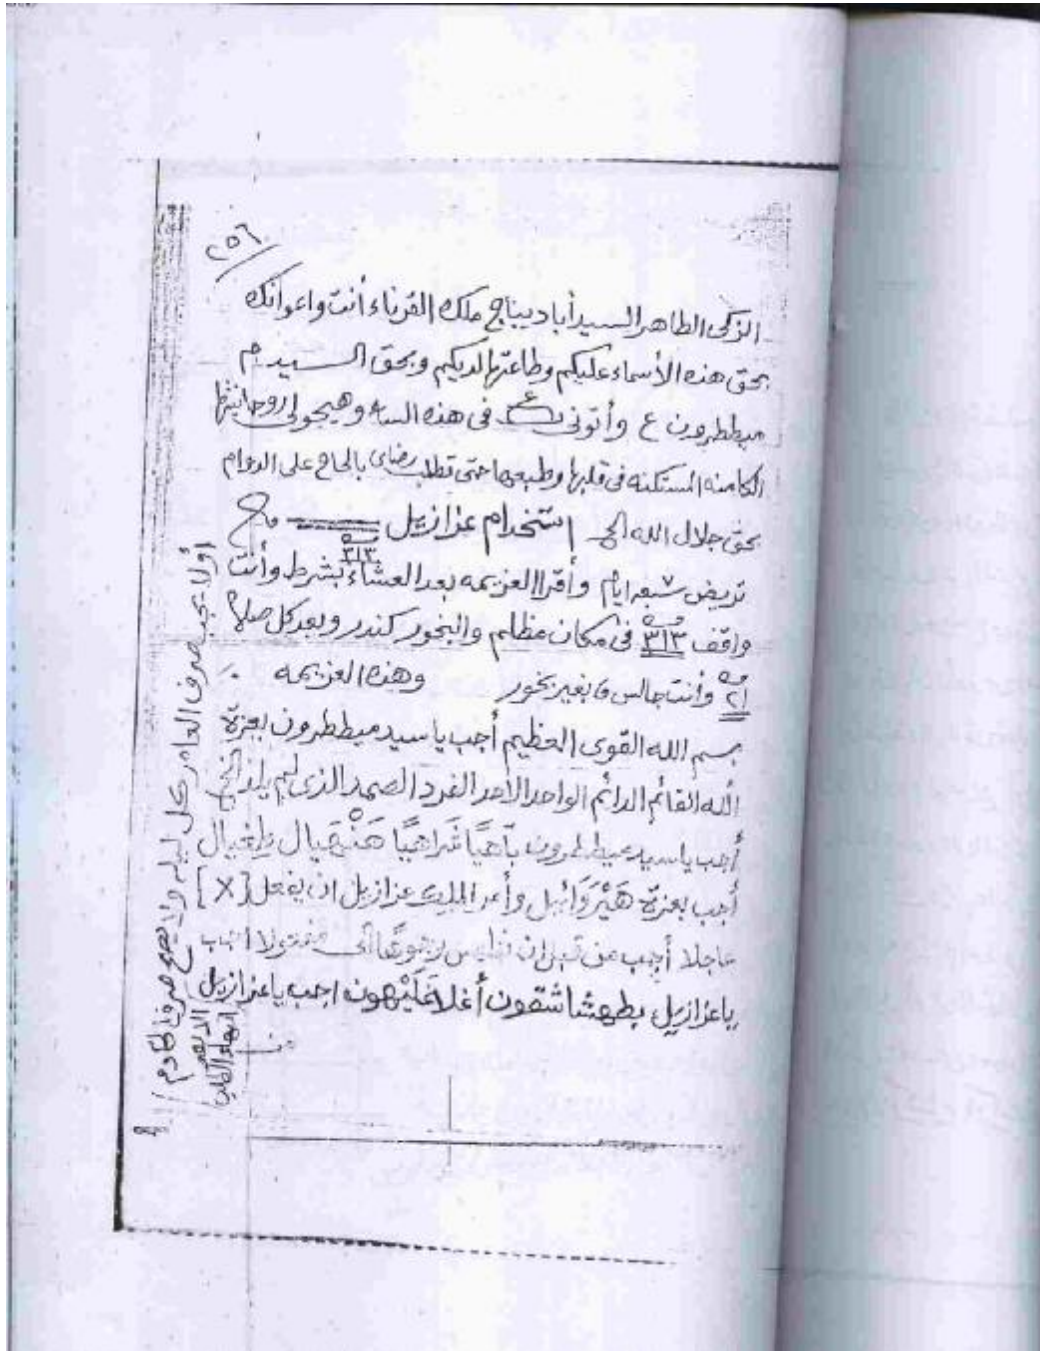 ٢٥٦
الزكى الطاهر السيد أباديباج ملك القرناء أنت واعوانك
بحق هذه الأسماء عليكم وطاعتها لديكم وبحق السيد م
ميططرون ع وأتونى فى هذه الساعه وهيجوا لى روحانيتها
الكامنه المستكنه فى قلبها وطبعها حتى تطلب رضاى بالحاح على الدوام
بحق جلال الله الحى استخدام عزازيل
تريض سبعه ايام وأقرا العزيمه ٣١٣ بعد العشاء بشرط وأنت
واقف ٣١٣ مره فى مكان مظلم والبخور كندر وبعد كل صلاه
٢١ مره وأنت جالس بغير بخور وهذه العزيمه
بسم الله القوى العظيم أجب يا سيد ميططرون بعزة
الله القائم الدائم الواحد الأحد الفرد الصمد الذى لم يلد الخ
أجب يا سيد ميططرون بآهيًا شراهيًا هَنْهَيال طِغيال
أجب بعزة هَيْرَوَائيل وأمر الملك عزازيل ان يفعل [X]
عاجلا أجب من قبل ان أجب
ياعزازيل بطهشاشقون أغلاعَلَيْهون اجب ياعزازيل
أولا يجب صرف العامر كل ليله ولا يصح صرف الخادم
الا بعد
انهاء الطلب